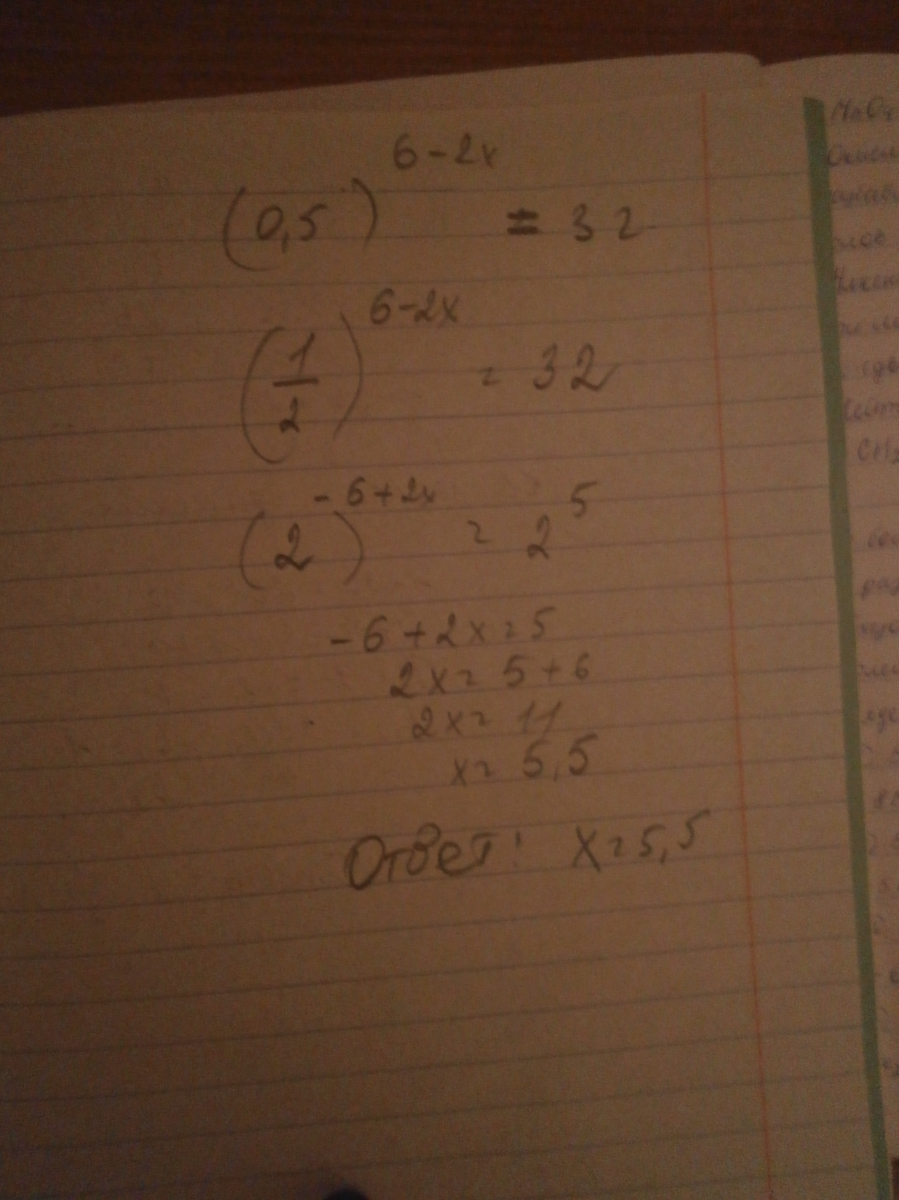 (0,5)^6-2x = 32
(1/2)^6-2x = 32
(2)^-6+2x = 2^5
-6+2x=5
2x=5+6
2x=11
x=5,5
Ответ: x=5,5